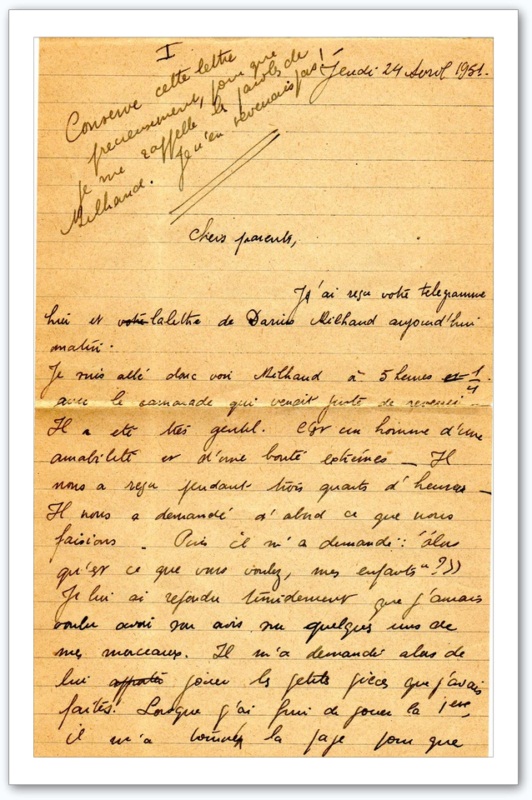 I
Conserve cette lettre
precieusement, pour que
je me rappelle les paroles de
Milhaud. Je n'en revenais pas!
Jeudi 24 Avril 1951.
Chers parents,
J'ai reçu votre telegramme
hier et votre la lettre de Darius Milhaud aujourd'hui
matin.
Je suis allé donc voir Milhaud à 5 heures et 1/4
avec le camarade qui venait juste de
Il a eté très gentil. C'est un homme d'une
amabilité et d'une bonté extrêmes — Il
nous a reçu pendant trois quarts d'heures —
Il nous a demandé d'abord ce que nous
faisions. Puis il m'a demandé : "alors
qu'est ce que vous voulez, mes enfants"?
Je lui ai repondu timidement que j'aurais
voulu avoir son avis sur quelques uns de
mes morceaux. Il m'a demandé alors de
lui jouer les petites pièces que j'avais
faites. Lorsque j'ai fini de jouer la 1ere
il m'a tourné la page pour que